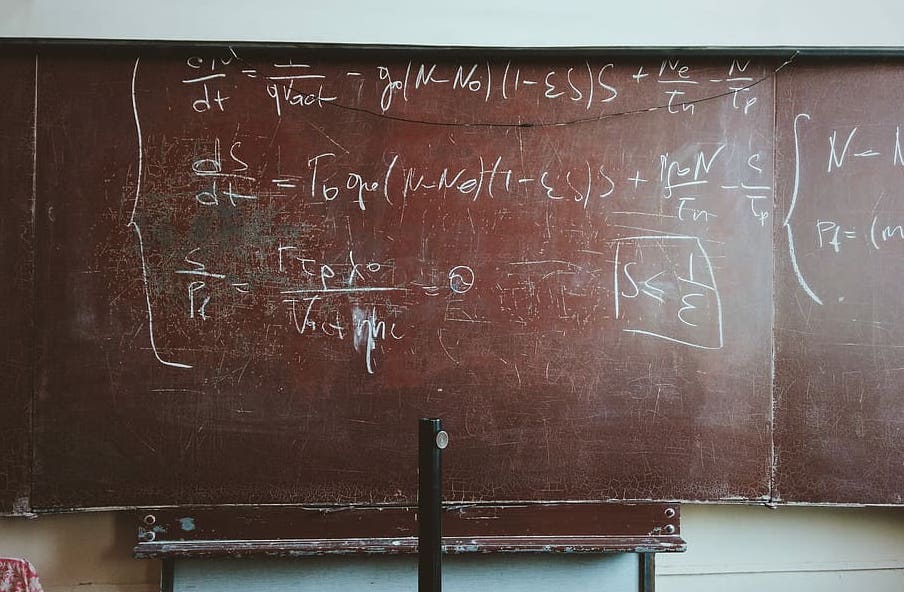 dN/dt = I/qVact - g₀(N-N₀)(1-εS)S + Ne/τn - N/τp
dS/dt = Γ₀g₀(N-N₀)(1-εS)S + N/τn - S/τp
S/Pf = Γτpλ₀/Vact ηhc = ϑ
S ≤ 1/ε
N - N
Pf = (m